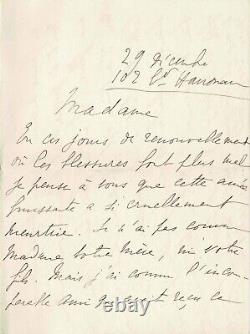 29 décembre
102 Bd Haussmann
Madame
En ces jours de renouvellement
où les blessures font plus mal
je pense à vous que cette année
finissante a si cruellement
meurtrie. Je n'ai pas connu
Madame votre mère, ni votre
fils. Mais j'ai connu l'incom
parable ami qui
© 123rf.com